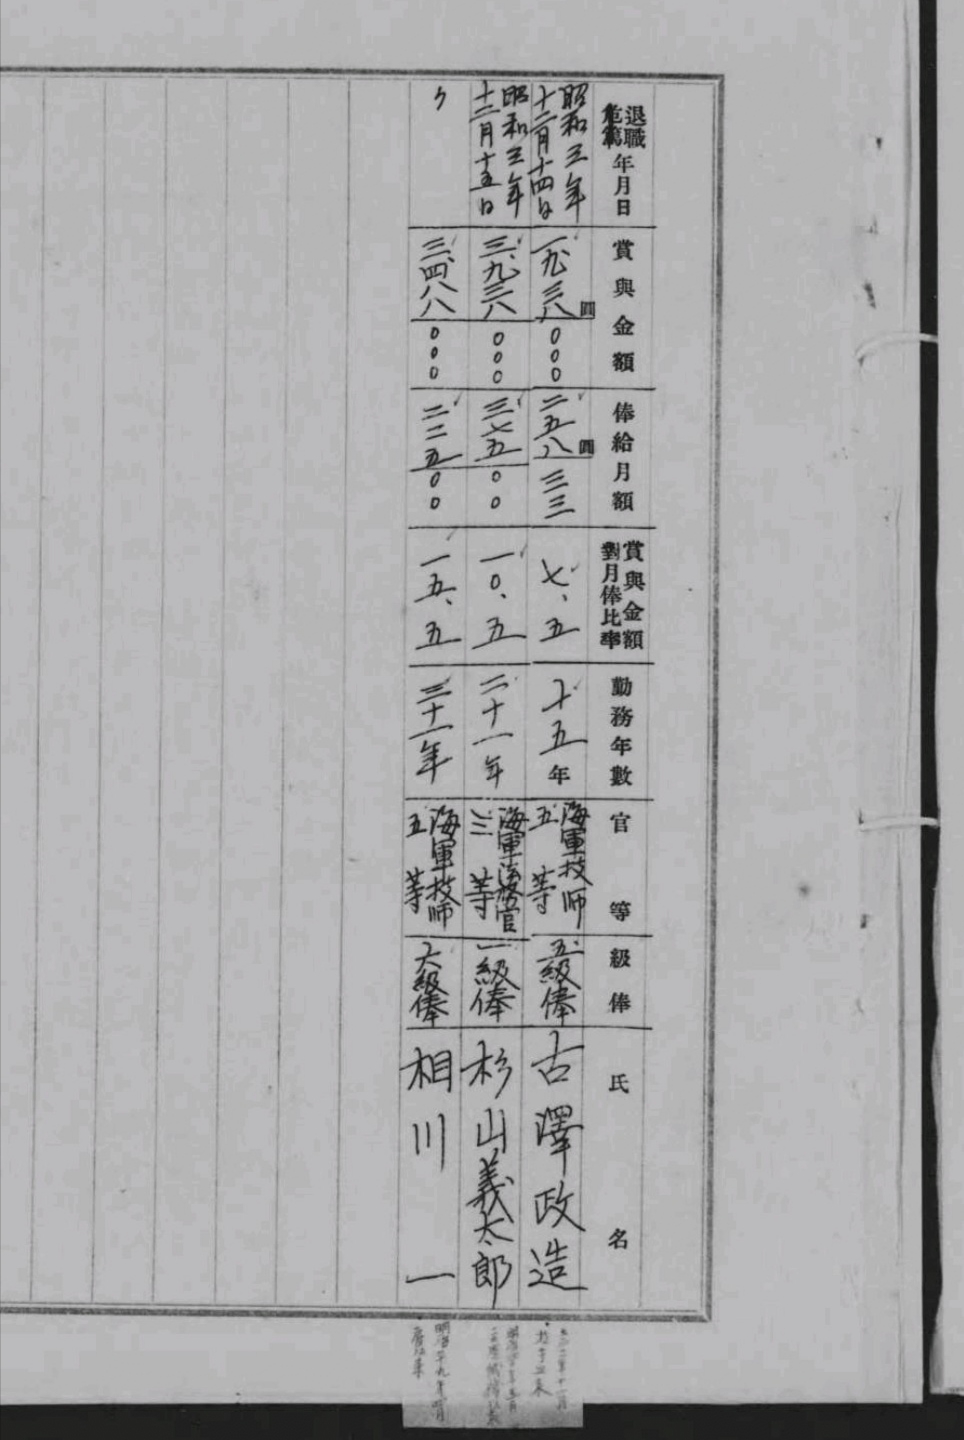 退職
危篤
年月日
賞與金額
俸給月額
賞與金額
對月俸比率
勤務年數
官等
級俸
氏名
昭和三年
十二月十四日
一九三八圓
〇〇〇
二五八圓
三三
七、五
十五年
海軍技師
五等
五級俸
古澤政造
昭和三年
十二月十五日
三、九三八
〇〇〇
三七五
〇〇
一〇、五
二十一年
海軍法務官
三等
一級俸
杉山義太郎
〃
三、四八八
〇〇〇
二二五
〇〇
一五、五
三十一年
海軍技師
五等
六級俸
相川一